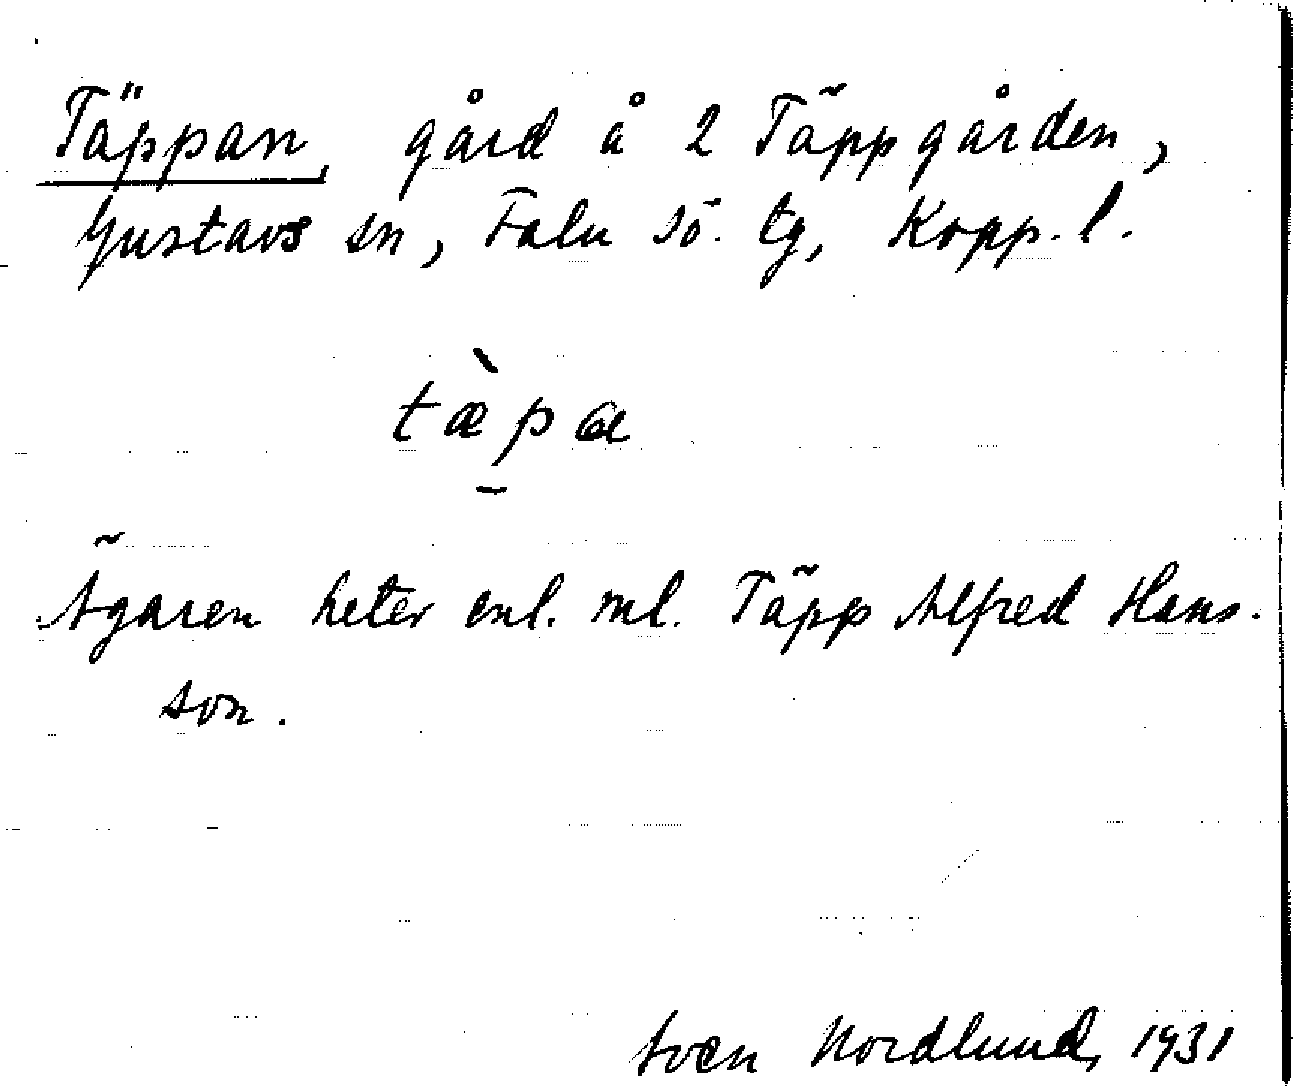 Täppan, gård å 2 Täppgården,
Gustavs sn, Falu sö. tg, Kopp. l.
tæ̀pa
Ägaren heter enl. ml. Täpp Alfred Hans-
son.
Sven Nordlund, 1931